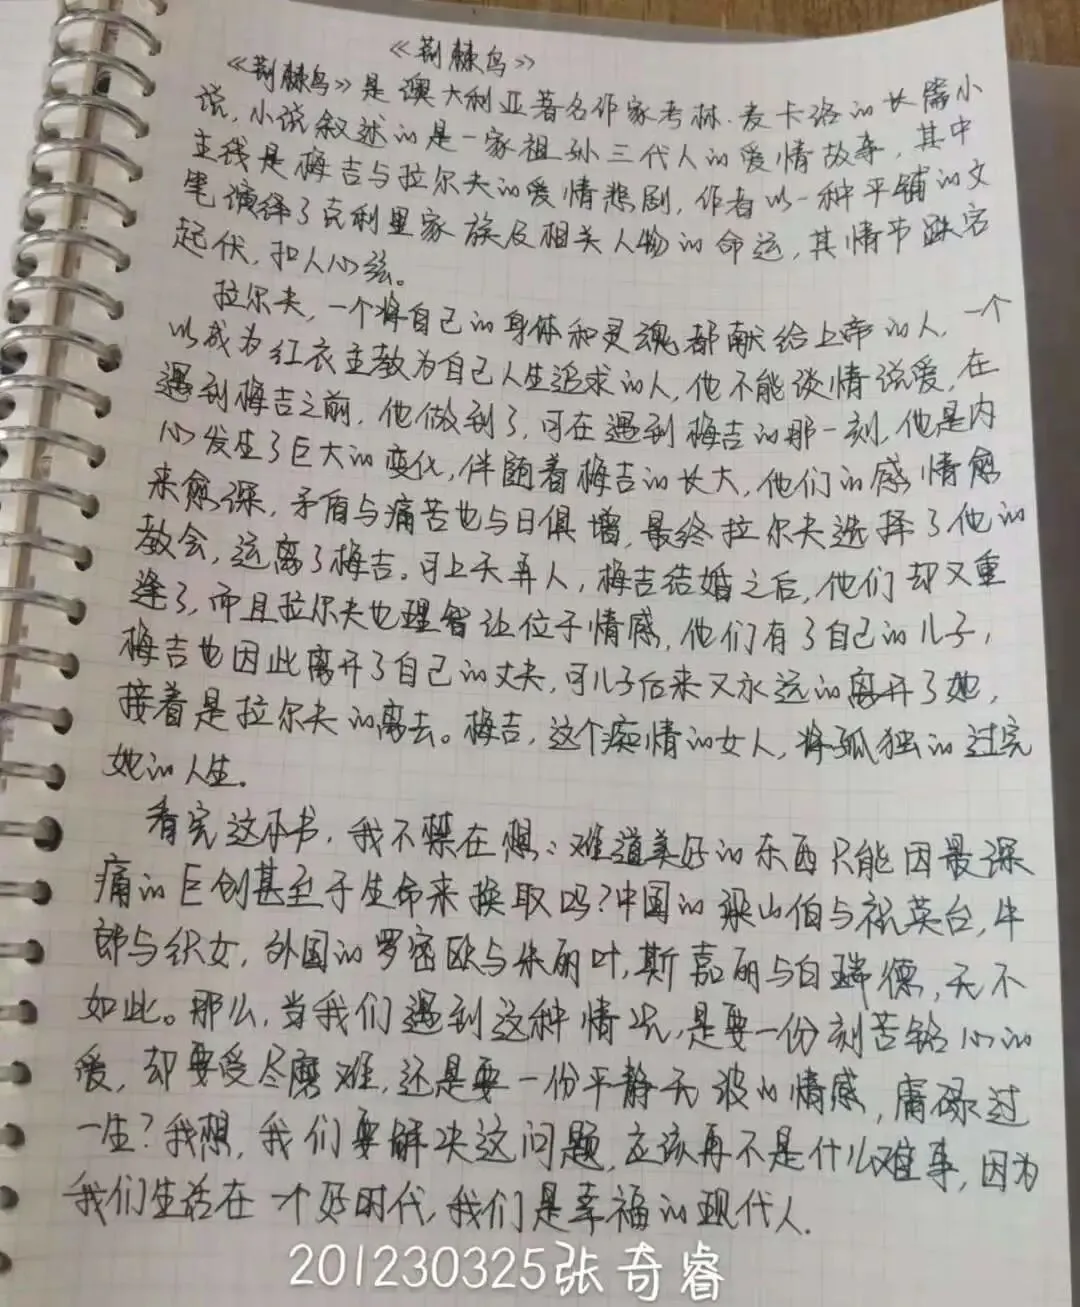 《荆棘鸟》
《荆棘鸟》是澳大利亚著名作家考林·麦卡洛的长篇小
说,小说叙述的是一家祖孙三代人的爱情故事,其中
主线是梅吉与拉尔夫的爱情悲剧,作者以一种平铺的文
笔演绎了克利里家族及相关人物的命运,其情节跌宕
起伏,扣人心弦。
拉尔夫,一个将自己的身体和灵魂都献给上帝的人,一个
以成为红衣主教为自己人生追求的人,他不能谈情说爱,在
遇到梅吉之前,他做到了,可在遇到梅吉的那一刻,他是内
心发生了巨大的变化,伴随着梅吉的长大,他们的感情愈
来愈深,矛盾与痛苦也与日俱增,最终拉尔夫选择了他的
教会,远离了梅吉。可上天弄人,梅吉结婚之后,他们却又重
逢了,而且拉尔夫也理智让位于情感,他们有了自己的儿子,
梅吉也因此离开了自己的丈夫,可儿子后来又永远的离开了她,
接着是拉尔夫的离去。梅吉,这个痴情的女人,将孤独的过完
她的人生。
看完这本书,我不禁在想:难道美好的东西只能因最深
痛的巨创甚至于生命来换取吗?中国的梁山伯与祝英台,牛
郎与织女,外国的罗密欧与朱丽叶,斯嘉丽与白瑞德,无不
如此。那么,当我们遇到这种情况,是要一份刻苦铭心的
爱,却要受尽磨难,还是要一份平静无波的情感,庸碌过
一生?我想,我们要解决这问题,应该再不是什么难事,因为
我们生活在一个好时代,我们是幸福的现代人.
201230325张奇睿